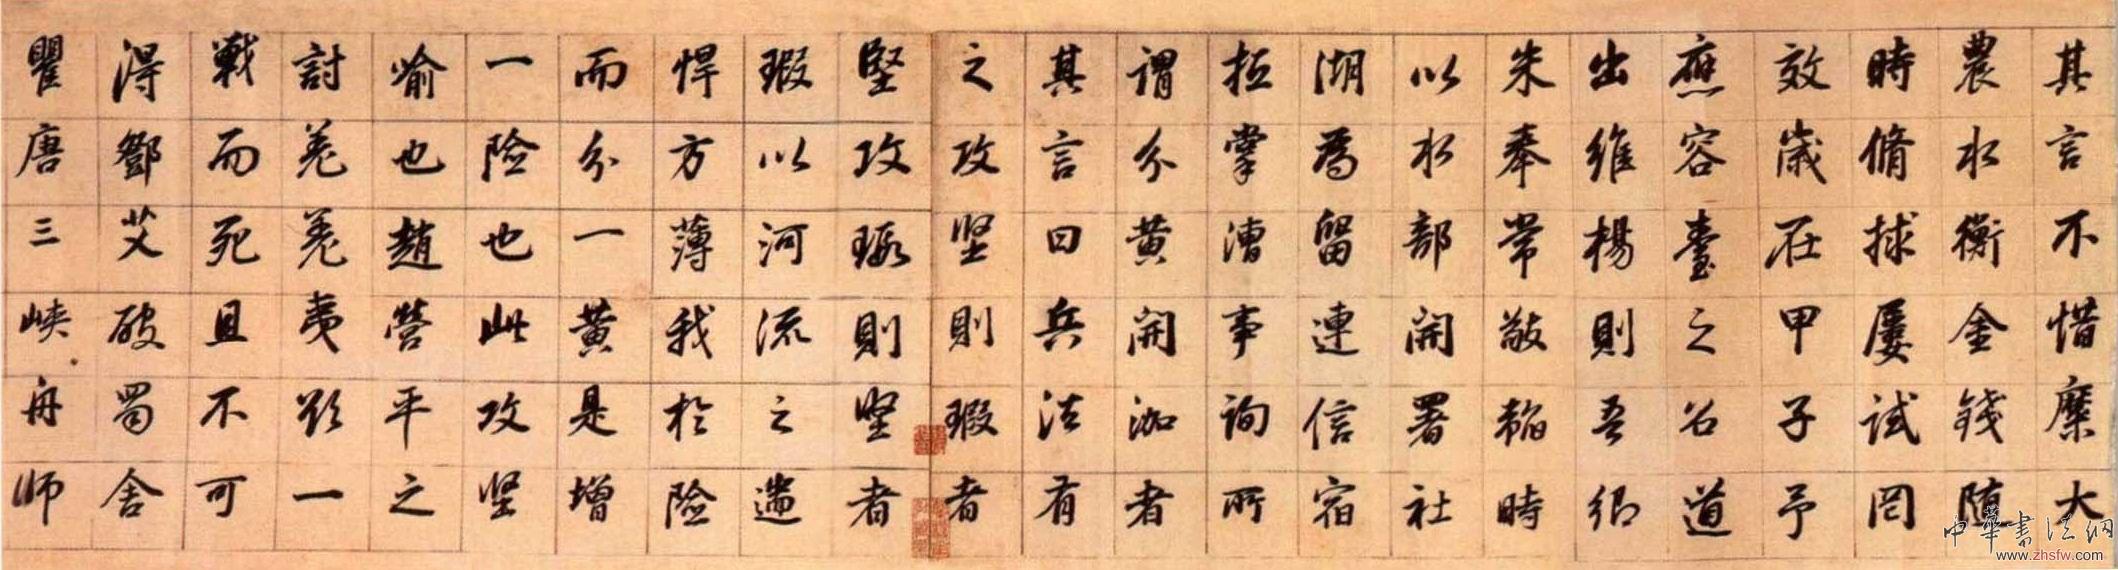 其言不惜糜大
農水衡金錢隨
時脩捄屢試罔
效歲在甲子予
應容臺之召道
出維楊則吾鄉
朱奉常敬韜時
以水部開署社
湖為留連信宿
抵掌漕事詢所
謂分黃開泇者
其言曰兵法有
之攻坚則瑕者
堅攻瑕則坚者
瑕以河流之遄
悍方薄我於險
而分一黃是增
一險也此攻坚
喻也趙營平之
討羌羌夷欵一
戰而死且不可
得鄧艾破蜀舍
瞿唐三峽舟師
中華書法網
www.zhsfw.com